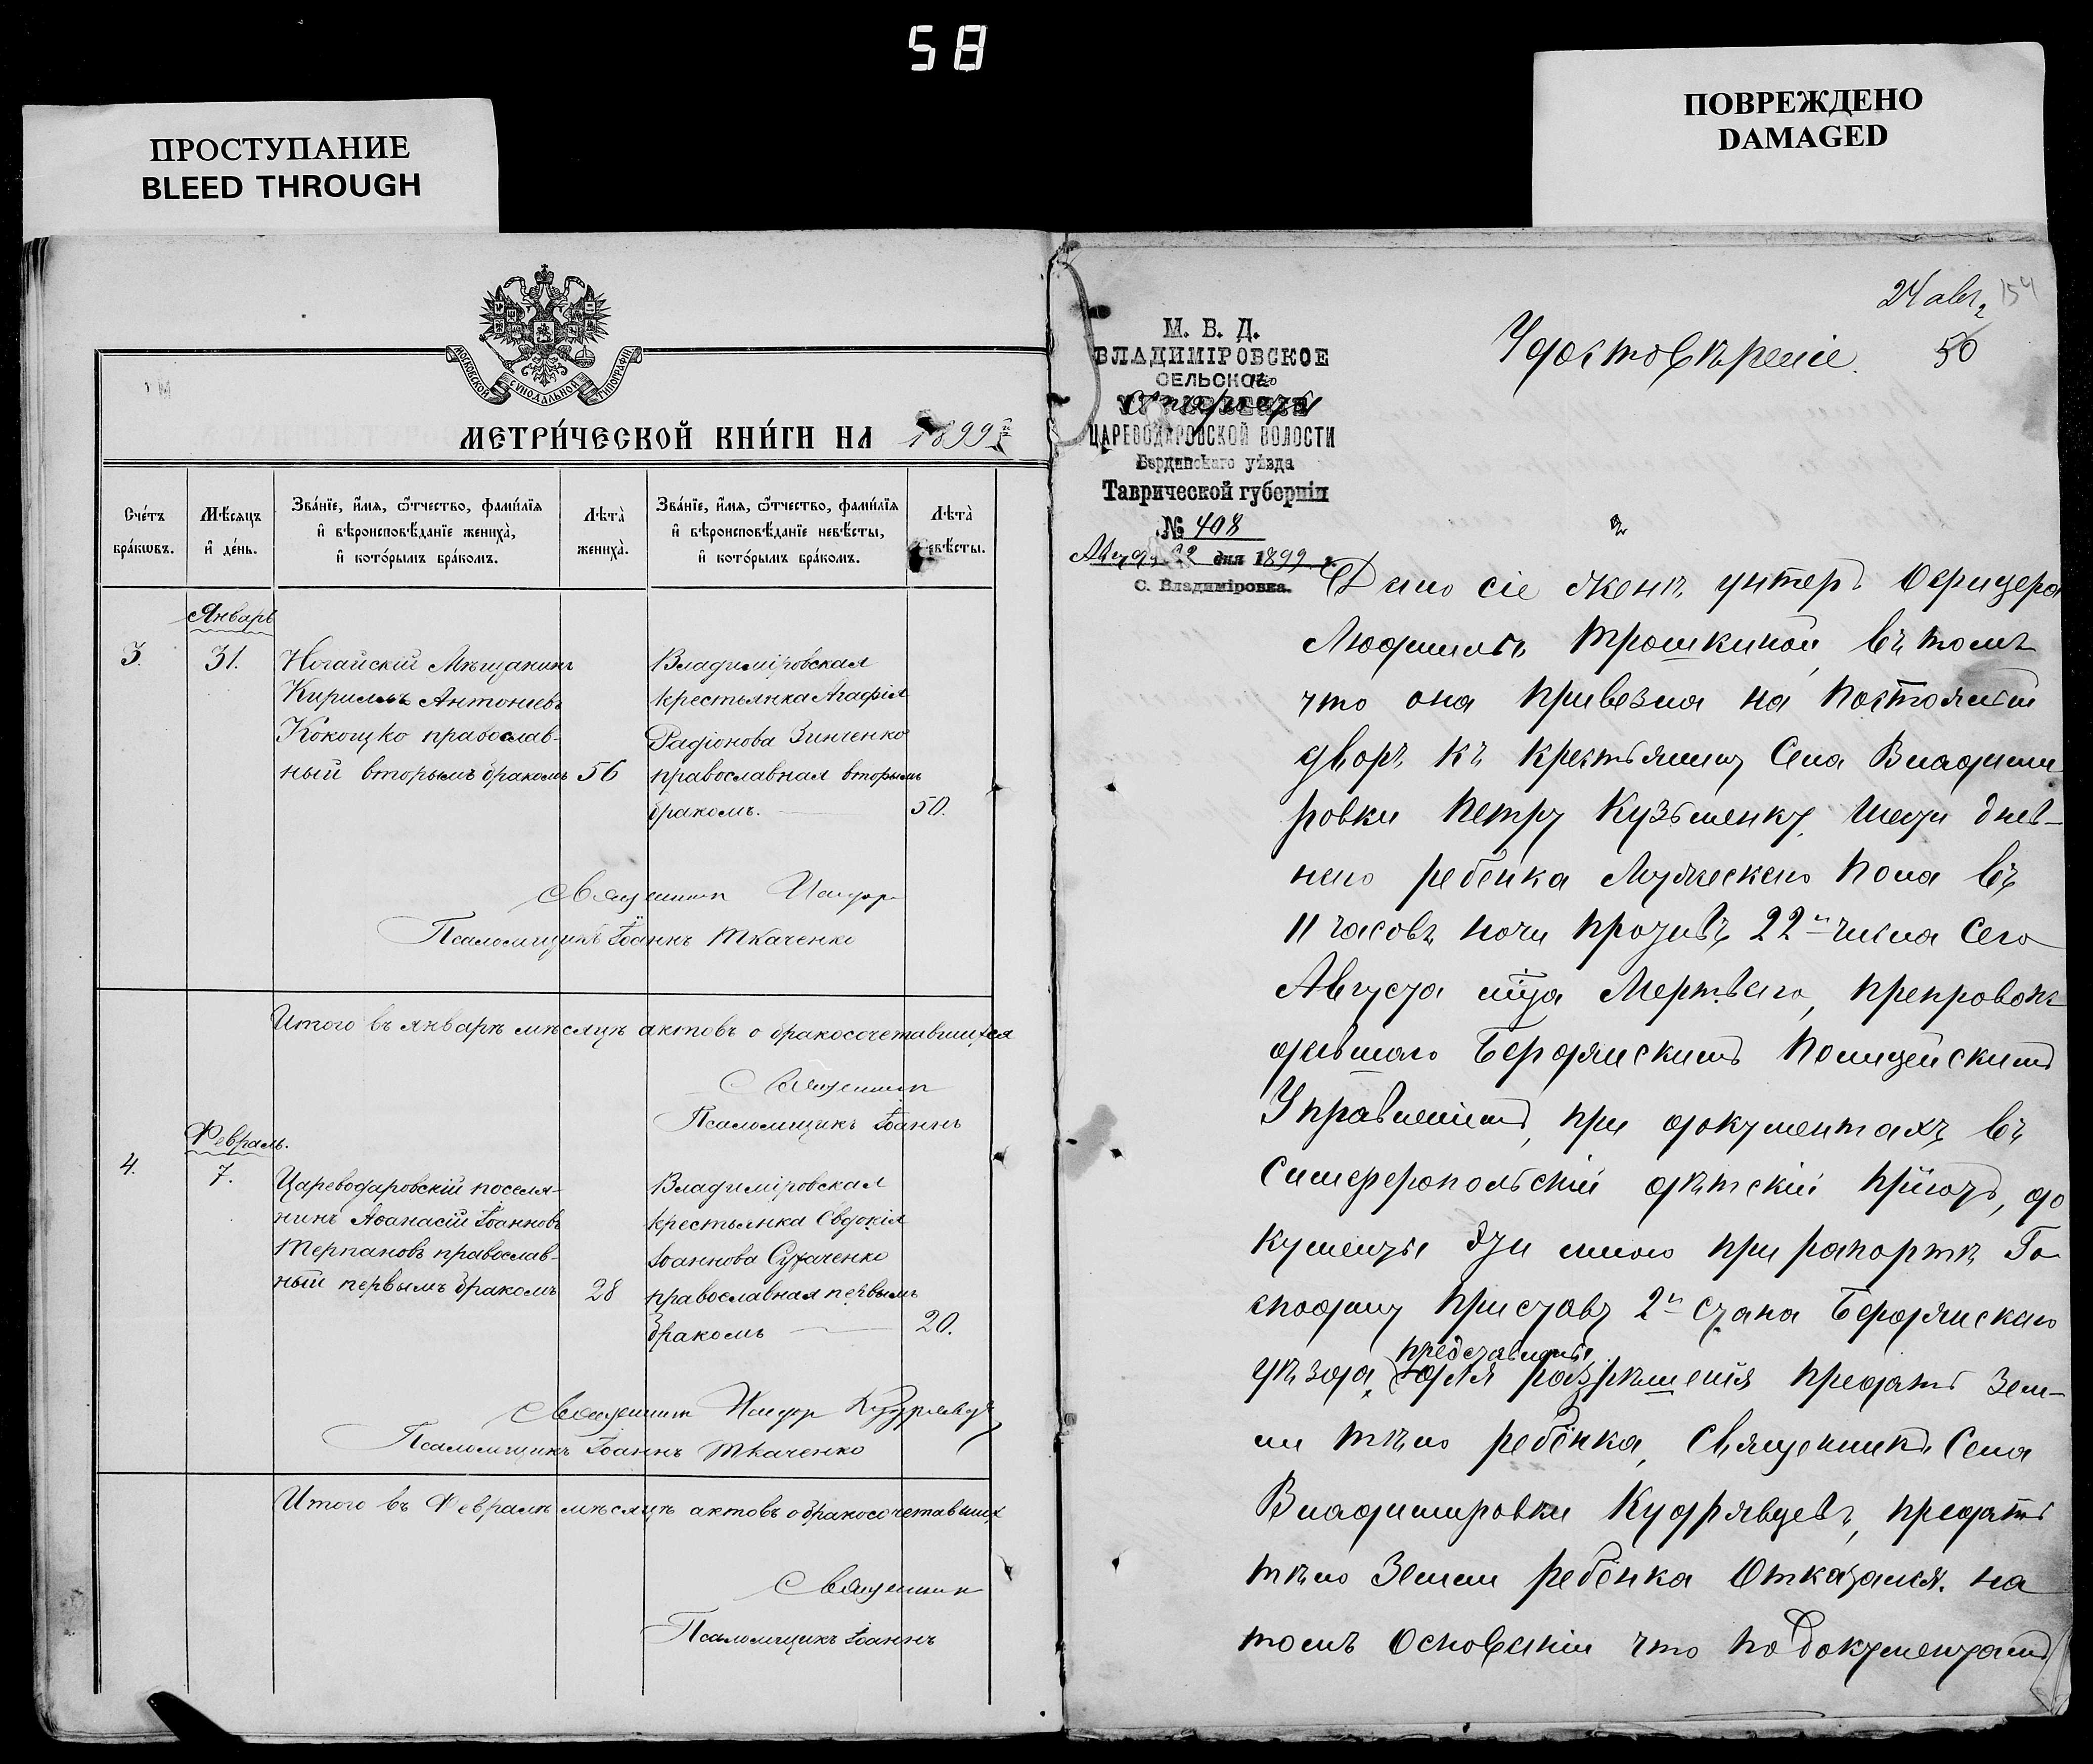 58
ПРОСТУПАНИЕ
BLEED THROUGH
ПОВРЕЖДЕНО
DAMAGED
МОСКОВСКОЙ СѴНОДАЛЬНОЙ ТИПОГРАФІИ
МЕТРИ́ЧЕСКОЙ КНИ́ГИ НА 1899
Сче́тъ бра́кѡвъ.
Мѣ́сяцъ и҆ де́нь.
Зва́нїе, и҆́мя, ѻ҆́тчество, фами́лїя и҆ вѣроисповѣ́данїе жениха̀, и҆ кото́рымъ бра́комъ.
Лѣта̀ жениха̀.
Зва́нїе, и҆́мя, ѻ҆́тчество, фами́лїя и҆ вѣроисповѣ́данїе невѣ́сты, и҆ кото́рымъ бра́комъ.
Лѣта̀ невѣ́сты.
Январь
3.
31.
Ногайскій Мѣщанинъ
Кириллъ Антоніевъ
Кокоцко православ-
ный вторымъ бракомъ
56
Владиміровская
крестьянка Агафія
Радіонова Зинченко
православная вторымъ
бракомъ.
50.
Священник
Псаломщикъ Іоаннъ Ткаченко
Итого въ январѣ мѣсяцѣ актовъ о бракосочетавшихся
Священник
Псаломщикъ Іоаннъ
Февраль.
4.
7.
Цареводаровскій поселя-
нинъ Аѳанасій Іоанновъ
Терпановъ православ-
ный первымъ бракомъ
28
Владиміровская
крестьянка Евдокія
Іоаннова Сугаченко
православная первымъ
бракомъ
20.
Священник Кудрявцев
Псаломщикъ Іоаннъ Ткаченко
Итого въ Февралѣ мѣсяцѣ актовъ о бракосочетавших
Священник
Псаломщикъ Іоаннъ
24 авг
154
50
М. В. Д.
ВЛАДИМІРОВСКОЕ
СЕЛЬСКОЕ
Старосты
ЦАРЕВОДАРОВСКОЙ ВОЛОСТИ
Бердянскаго уѣзда
Таврической губерніи
№ 408
Августа 22 дня 1899 г.
С. Владиміровка.
Удостовѣреніе.
Дано сіе женѣ унтеръ Офицера
Людмилѣ Трошкиной, въ томъ
что она привезла на постоялый
дворъ къ крестьянину Села Владими
ровки Петру Кузьменку, шести днев-
наго ребенка Мужескаго пола въ
11 часовъ ночи противъ 22 числа Сего
Августа м-ца Мертваго, препровож
давшаго Бердянскимъ Полицейскимъ
Управленіемъ, при документахъ въ
Симферопольскій дѣтскій пріютъ, до
кументы эти мною при рапортѣ Го
сподину Приставу 2 стана Бердянскаго
представлены
уѣзда, для разрѣшенія предать Зем-
ли тѣло ребенка, Священникъ Села
Владимировки Кудрявцевъ, предать
тѣло Земли ребенка Отказался. на
томъ Основаніи что по документамъ